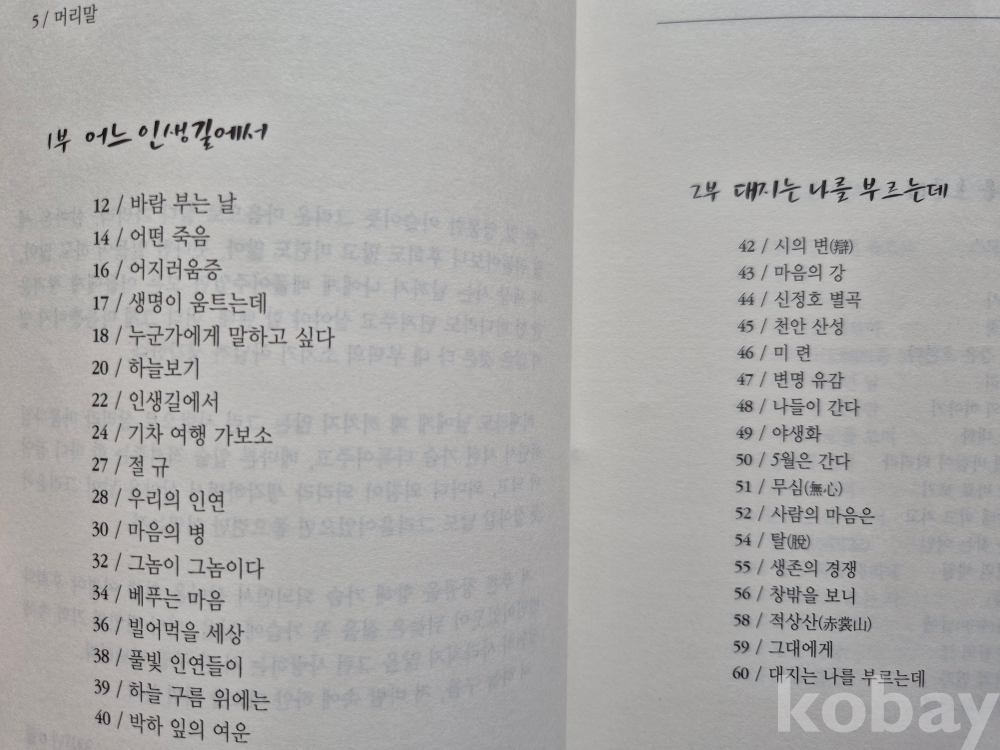 5 / 머리말
1부 어느 인생길에서
12 / 바람 부는 날
14 / 어떤 죽음
16 / 어지러움증
17 / 생명이 움트는데
18 / 누군가에게 말하고 싶다
20 / 하늘보기
22 / 인생길에서
24 / 기차 여행 가보소
27 / 절 규
28 / 우리의 인연
30 / 마음의 병
32 / 그놈이 그놈이다
34 / 베푸는 마음
36 / 빌어먹을 세상
38 / 풀빛 인연들이
39 / 하늘 구름 위에는
40 / 박하 잎의 여운
2부 대지는 나를 부르는데
42 / 시의 변(辯)
43 / 마음의 강
44 / 신정호 별곡
45 / 천안 산성
46 / 미 련
47 / 변명 유감
48 / 나들이 간다
49 / 야생화
50 / 5월은 간다
51 / 무심(無心)
52 / 사람의 마음은
54 / 탈(脫)
55 / 생존의 경쟁
56 / 창밖을 보니
58 / 적상산(赤裳山)
59 / 그대에게
60 / 대지는 나를 부르는데
kobay